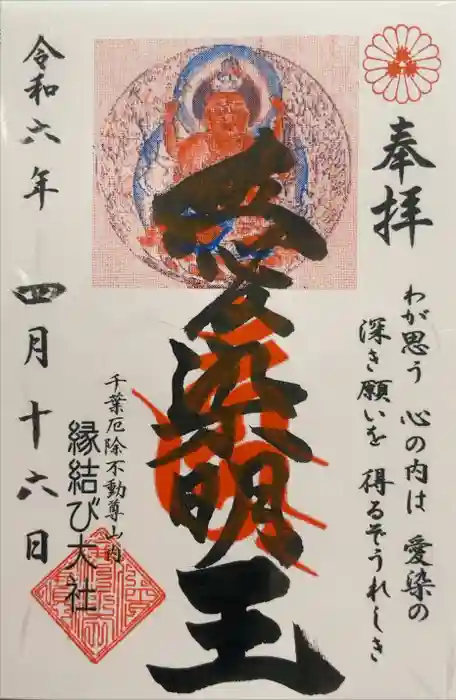 奉拝
わが思う 心の内は 愛染の
深き願いを 得るぞうれしき
愛染明王
千葉厄除不動尊山内
縁結び大社
令和六年 四月十六日